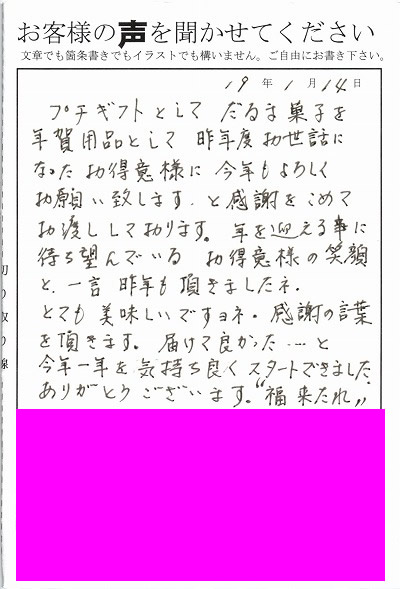 お客様の声を聞かせてください
文章でも箇条書きでもイラストでも構いません。ご自由にお書き下さい。
19年1月14日
プチギフトとして だるま菓子を
年賀用品として 昨年度お世話に
なった お得意様に 今年もよろしく
お願い致します、と感謝をこめて
お渡ししております。年を迎える事に
待ち望んでいる お得意様の笑顔
と、一言 昨年も頂きましたネ、
とても美味しいですヨネ・感謝の言葉
を頂きます。届けて良かった…と
今年一年を気持ち良くスタートできました、
ありがとうございます。“福来たれ„
切り取り線